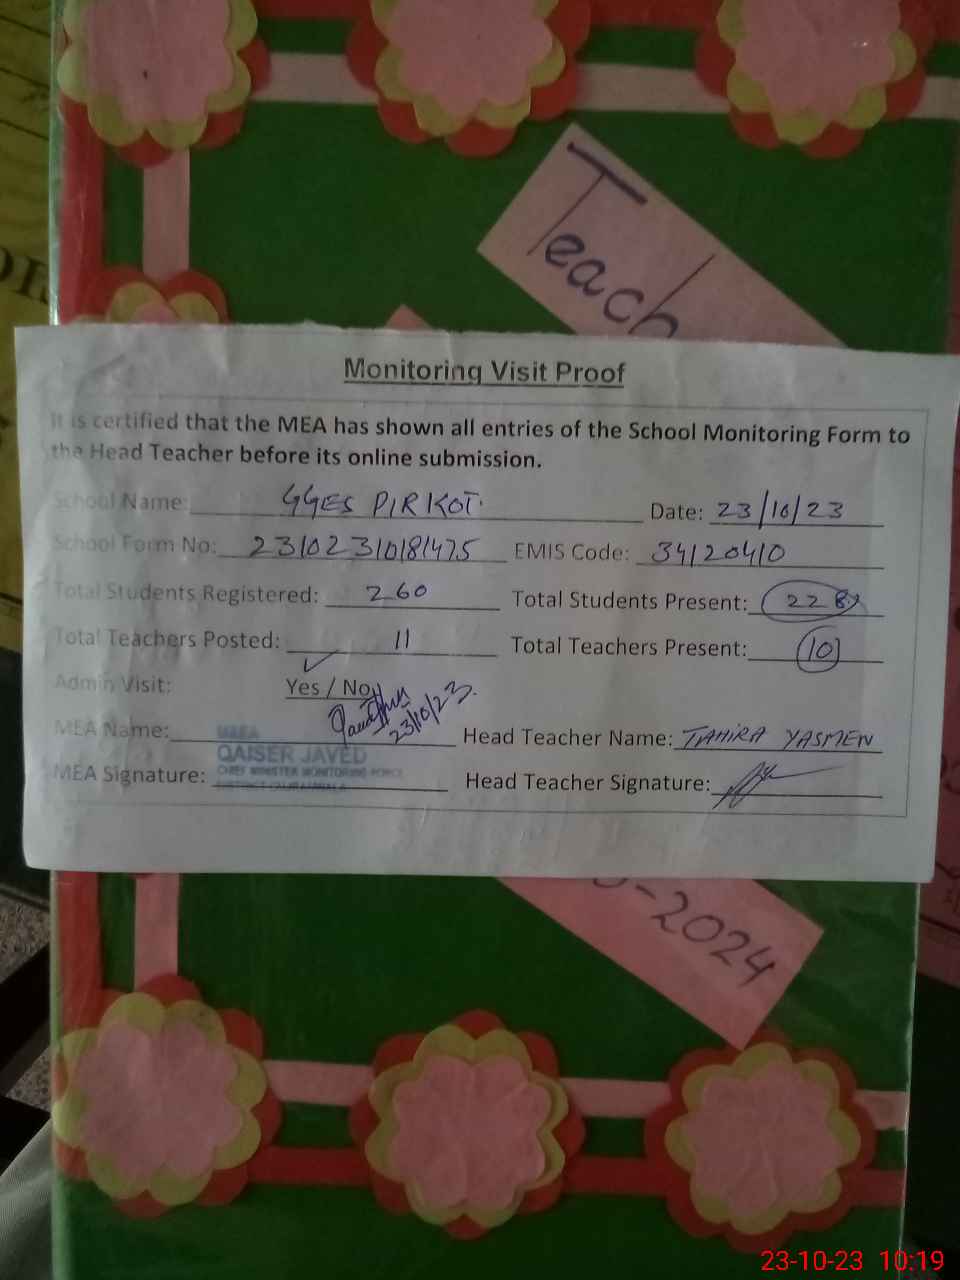 Teach
Monitoring Visit Proof
It is certified that the MEA has shown all entries of the School Monitoring Form to
the Head Teacher before its online submission.
School Name: GGES PIRKOT. Date: 23/10/23
School Form No: 23102310181475 EMIS Code: 34120410
Total Students Registered: 260 Total Students Present: 228
Total Teachers Posted: 11 Total Teachers Present: 10
Admin Visit: Yes / No
23/10/23.
MEA Name: MEA Head Teacher Name: TAHIRA YASMEN
QAISER JAVED
CHIEF MINISTER MONITORING FORCE
MEA Signature: Head Teacher Signature:
-2024
23-10-23 10:19